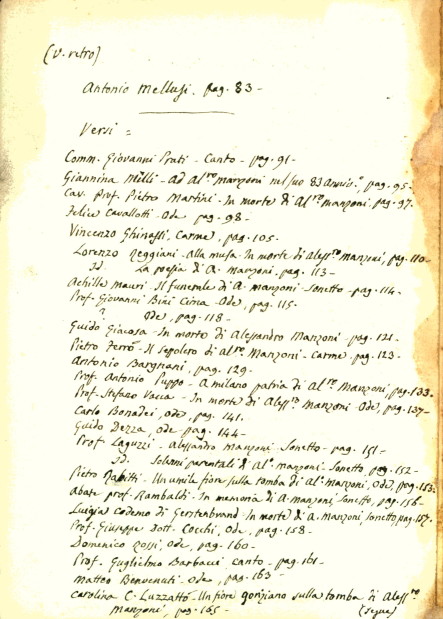 (V. retro)
Antonio Mellusi, pag. 83 -
Versi =
Comm. Giovanni Prati - Canto - pag. 91 -
Giannina Milli - Ad Al.ro Manzoni nel suo 83 Anniv.o, pag. 95 -
Cav. Prof. Pietro Martini - In morte di Al.ro Manzoni, pag. 97.
Felice Cavallotti - Ode pag. 98 -
Vincenzo Ghinassi, Carme, pag. 105 -
Lorenzo Neggiani - Alla musa - In morte di Aless.ro Manzoni, pag. 110 -
Id. La poesia di A. Manzoni, pag. 113 -
Achille Mauri - Il funerale di A. Manzoni - Sonetto - pag. 114 -
Prof. Giovanni Bini Cima - Ode, pag. 115.
? Ode, pag. 118 -
Guido Giacosa - In morte di Alessandro Manzoni - pag. 121 -
Pietro Ferro - Il sepolcro di Al.ro Manzoni - Carme - pag. 123 -
Antonio Bargnani, pag. 129 -
Prof. Antonio Puppo - A Milano patria di Al.ro Manzoni, pag. 133 -
Prof. Stefano Vacca - In morte di Aless.ro Manzoni - Ode, pag. 137 -
Carlo Bonadei, ode, pag. 141.
Guido Dezza, ode, pag. 144 -
Prof. Laguzzi - Alessandro Manzoni - Sonetto - pag. 151 -
Id. Solenni parentali di Al.o Manzoni - Sonetto, pag. 152 -
Pietro Rabitti - Un umile fiore sulla tomba di Al.o Manzoni, Ode, pag. 153 -
Abate prof. Rambaldi - In memoria di A. Manzoni, Sonetto, pag. 156 -
Luigia Codemo di Gerstenbrand - In morte di A. Manzoni, Sonetto, pag. 157 -
Prof. Giuseppe Dott. Cocchi, Ode, pag. 158 -
Domenico Rossi, Ode, pag. 160 -
Prof. Guglielmo Barbacci, canto - pag. 161 -
Matteo Benvenuti - Ode, pag. 163 -
Carolina C. Luzzatto - Un fiore goriziano sulla tomba di Aless.ro
Manzoni, pag. 165 - (segue)